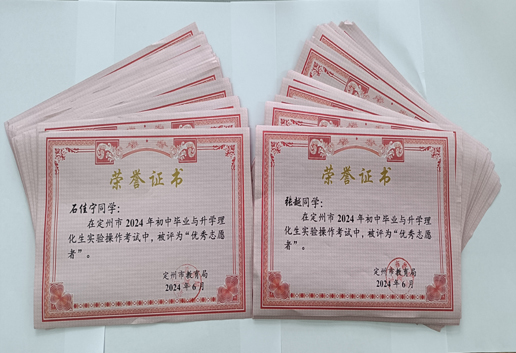 荣誉证书
石佳宁同学：
在定州市 2024 年初中毕业与升学理
化生实验操作考试中，被评为“优秀志愿
者”。
定州市教育局
2024 年 6 月
荣誉证书
张越同学：
在定州市 2024 年初中毕业与升学理
化生实验操作考试中，被评为“优秀志愿
者”。
定州市教育局
2024 年 6 月